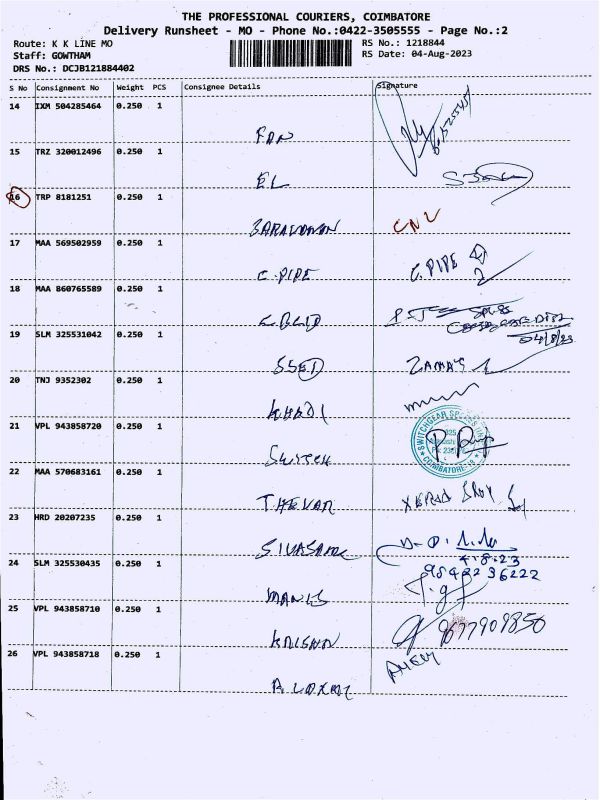 THE PROFESSIONAL COURIERS, COIMBATORE
Delivery Runsheet - MO - Phone No.:0422-3505555 - Page No.:2
Route: K K LINE MO
RS No.: 1218844
Staff: GOWTHAM
RS Date: 04-Aug-2023
DRS No.: DCJB121884402
S No Consignment No Weight PCS Consignee Details Signature
14 IXM 504285464 0.250 1
FAN
15 TRZ 320012496 0.250 1
EL
16 TRP 8181251 0.250 1
CNL
17 MAA 569502959 0.250 1
C.PIPE C.PIPE
18 MAA 860765589 0.250 1
04/8/23
19 SLM 325531042 0.250 1
20 TNJ 9352302 0.250 1
KHADI
21 VPL 943858720 0.250 1
SWITCHGEAR
COIMBATORE-18
SWITCH
22 MAA 570683161 0.250 1
THEVAR
23 HRD 20207235 0.250 1
SIVASAMI
4.8.23
24 SLM 325530435 0.250 1
98422 36222
25 VPL 943858710 0.250 1
KRISHN 9677909850
26 VPL 943858718 0.250 1
A LAXMI